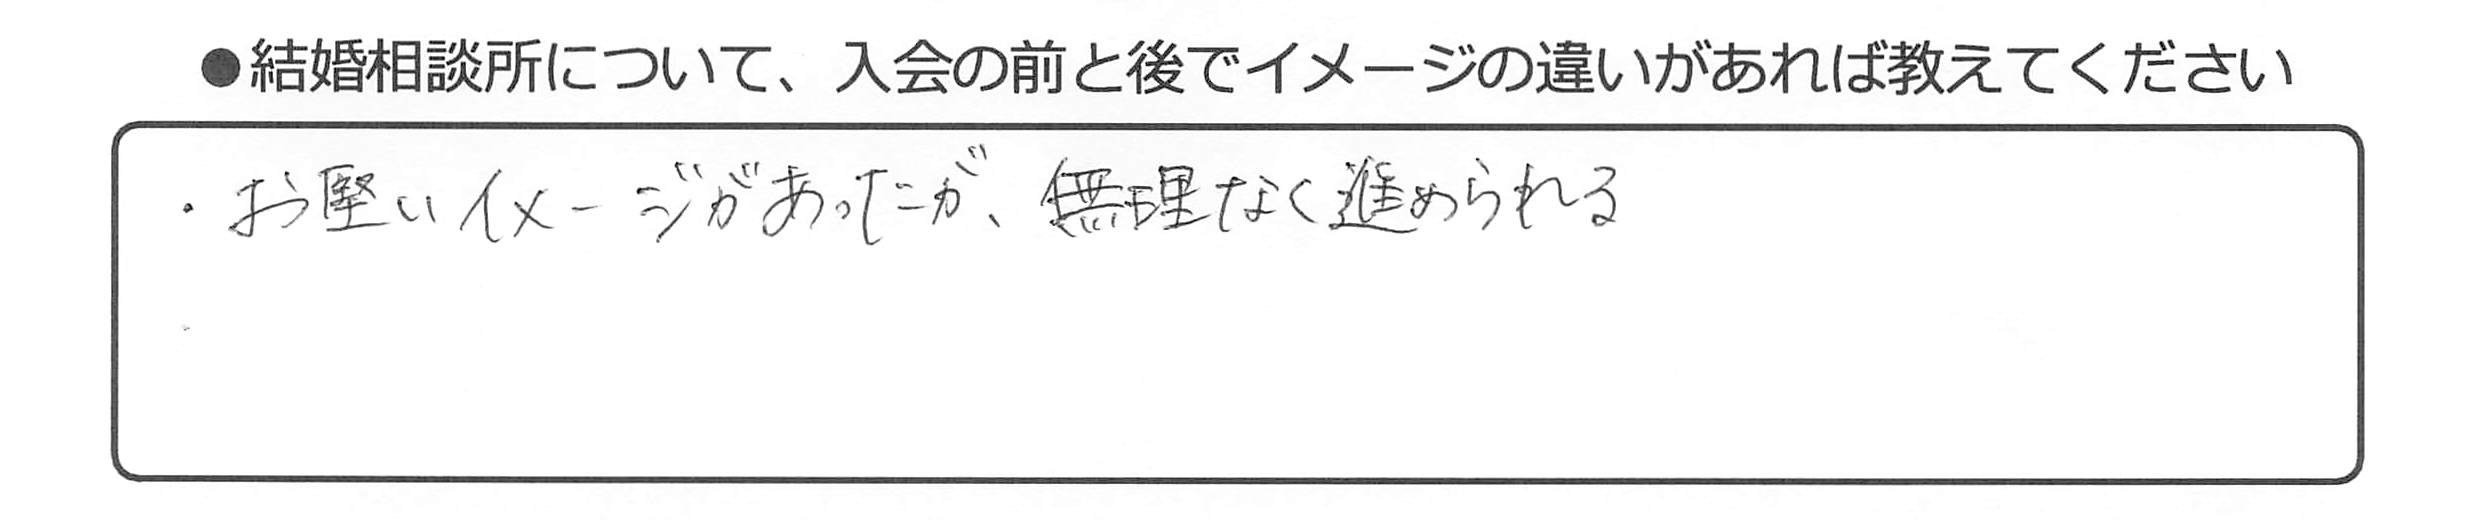 ●結婚相談所について、入会の前と後でイメージの違いがあれば教えてください
・お堅いイメージがあったが、無理なく進められる